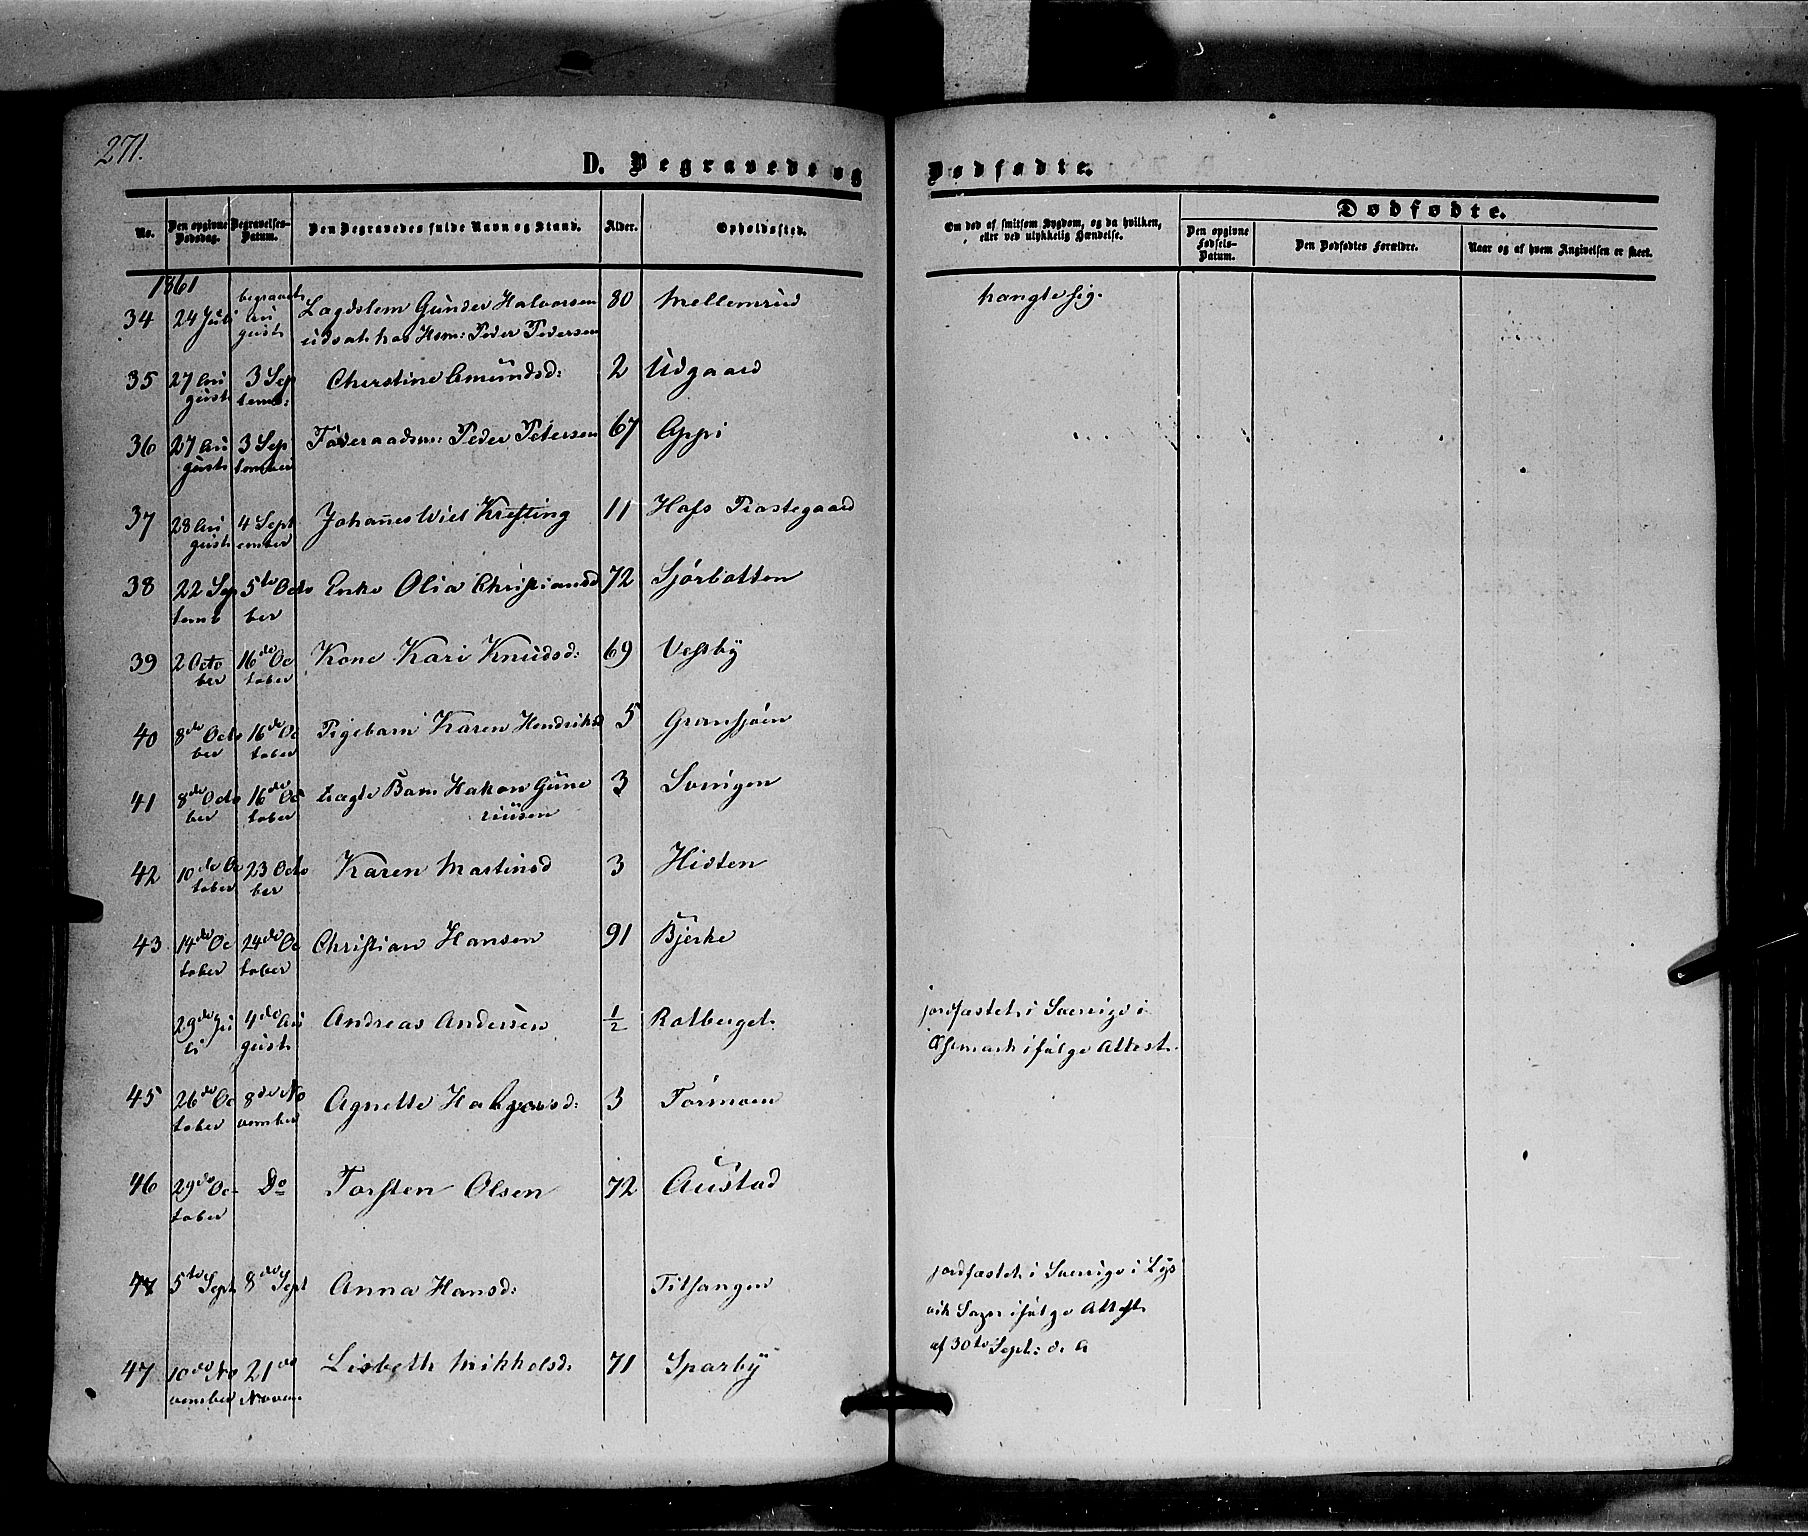 271.
D. Begravede og Dødfødte.
No. Den opgivne Dødsdag. Begravelses-Datum. Den Begravedes fulde Navn og Stand. Alder. Opholdssted. Om død af smitsom Sygdom, og da hvilken, eller ved ulykkelig Hændelse. Dødfødte. Den opgivne Fødsels-Datum. Den Dødfødtes Forældre. Naar og af hvem Angivelsen er skeet.
1861
34 24 Juli begravet August Lægdslem Gunder Halvorsen 80 Mellemrud hangte sig.
udsat hos Hsm: Peder Pedersen
35 27 August 3 Septemb: Cherstine Amundsd: 2 Udgaard
36 27 August 3 September Føderaadsm: Peder Petersen 67 Appi
37 28 August 4 September Johannes Wiel Krefting 11 Hofs Præstegaard
38 22 Septemb 5te October Enke Olia Christiansd 72 Sjørbotten
39 2 October 16de October Kone Kari Knudsd: 69 Vestby
40 8de October 16de October Pigebarn Karen Hendriksd 5 Gransjøen
41 8de October 16de October uægte Barn Hakon Gune 3 Svingen
riusen
42 10de October 23 October Karen Martinsd 3 Hidten
43 14de October 24de October Christian Hansen 91 Bjerke
29de Juli 4de August Andreas Andersen 1/2 Rotberget jordfæstet i Sverrige i
Østmark ifølge Attest.
45 26de October 8de November Agnette Halvorsd: 3 Tørmoen
46 29de October Do Torsten Olsen 72 Austad
47 5te Sept 8de Sept Anna Hansd: Titsangen jordfæstet i Sverrige i Lys
vik Sogn ifølge Attest
af 30te Sept: d. A
47 10de November 21de Novem Lisbeth Mikkelsd: 71 Sparby